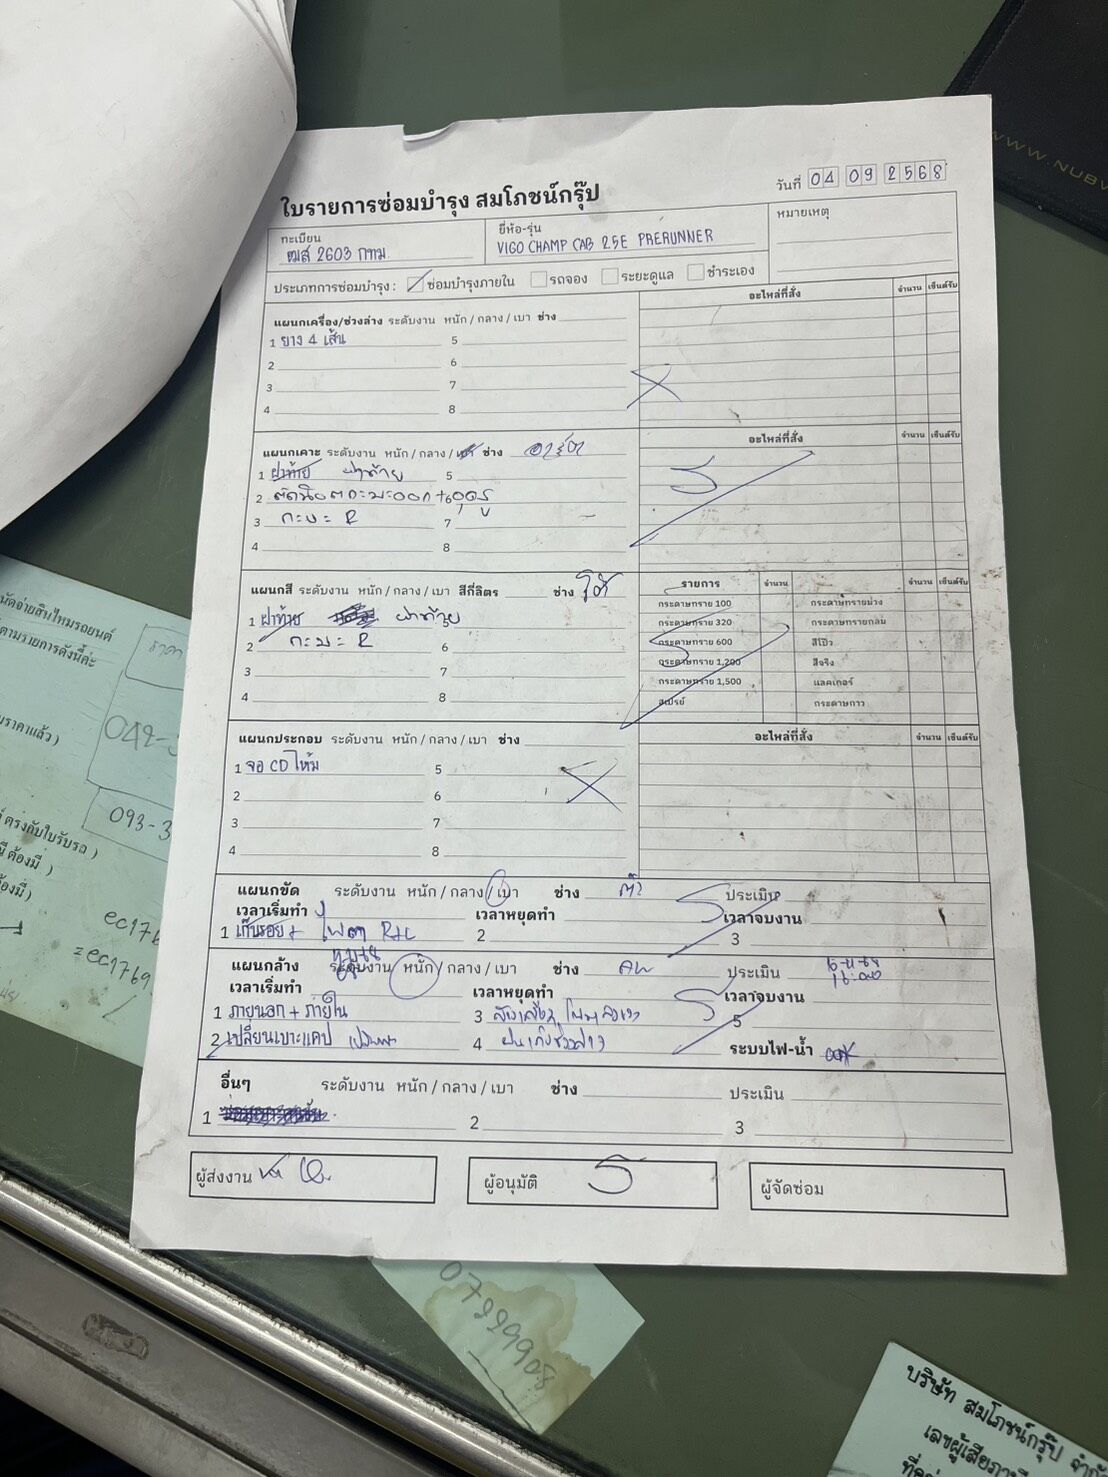 ใบรายการซ่อมบำรุง สมโภชน์กรุ๊ป
วันที่ 04 09 2568
ทะเบียน
ฒส 2603 กทม.
ยี่ห้อ-รุ่น
VIGO CHAMP CAB 2.5E PRERUNNER
หมายเหตุ
ประเภทการซ่อมบำรุง : ซ่อมบำรุงภายใน รถจอง ระยะดูแล ชำระเอง
แผนกเครื่อง/ช่วงล่าง ระดับงาน หนัก / กลาง / เบา ช่าง
อะไหล่ที่สั่ง จำนวน เซ็นต์รับ
1 ยาง 4 เส้น 5
2 6
3 7
4 8
แผนกเคาะ ระดับงาน หนัก / กลาง / เบา ช่าง
อะไหล่ที่สั่ง จำนวน เซ็นต์รับ
1 ฝาท้าย ฝาท้าย 5
2
3 กะบะ R 7
4 8
แผนกสี ระดับงาน หนัก / กลาง / เบา สีกี่ลิตร ช่าง โต้
รายการ จำนวน จำนวน เซ็นต์รับ
1 ฝาท้าย ฝาท้าย
2 กะบะ R 6
3 7
4 8
กระดาษทราย 100 กระดาษทรายม่วง
กระดาษทราย 320 กระดาษทรายกลม
กระดาษทราย 600 สีโป๊ว
กระดาษทราย 1,200 สีจริง
กระดาษทราย 1,500 แลคเกอร์
สเปรย์ กระดาษกาว
แผนกประกอบ ระดับงาน หนัก / กลาง / เบา ช่าง
อะไหล่ที่สั่ง จำนวน เซ็นต์รับ
1 จอ CD ไหม้ 5
2 6
3 7
4 8
แผนกขัด ระดับงาน หนัก / กลาง / เบา ช่าง ประเมิน
เวลาเริ่มทำ เวลาหยุดทำ เวลาจบงาน
1 เก็บรอย + ไฟตา R+L 2 3
แผนกล้าง ระดับงาน หนัก / กลาง / เบา ช่าง ประเมิน
เวลาเริ่มทำ เวลาหยุดทำ เวลาจบงาน
1 ภายนอก + ภายใน 3 5
2 เปลี่ยนเบาะแคป 4 ระบบไฟ-น้ำ
อื่นๆ ระดับงาน หนัก / กลาง / เบา ช่าง ประเมิน
1 2 3
ผู้ส่งงาน
ผู้อนุมัติ
ผู้จัดซ่อม
นัดจ่ายสินไหมรถยนต์
ตามรายการดังนี้ค่ะ
ราคา
042-
093-3
ตรงกับใบรับรถ )
0722990
บริษัท สมโภชน์กรุ๊ป